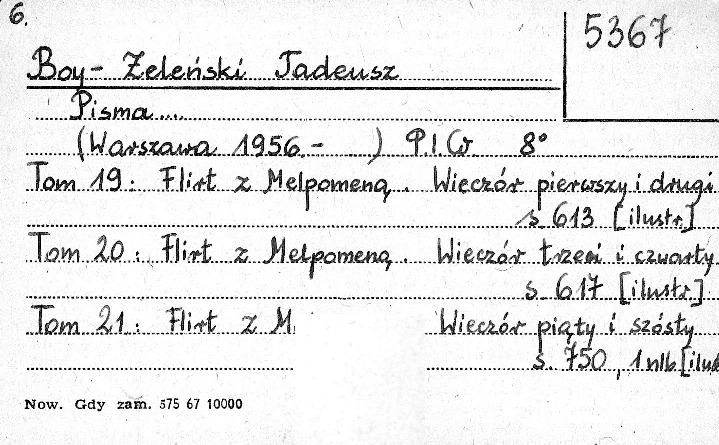 6.
5367
Boy-Żeleński Tadeusz
Pisma...
(Warszawa 1956.- ) P.I.W 8°
Tom 19: Flirt z Melpomeną. Wieczór pierwszy i drugi
s. 613 [ilustr.]
Tom 20: Flirt z Melpomeną. Wieczór trzeci i czwarty
s. 617 [ilustr.]
Tom 21: Flirt z M Wieczór piąty i szósty
s. 750, 1 nlb [ilus
Now. Gdy zam. 575 67 10000